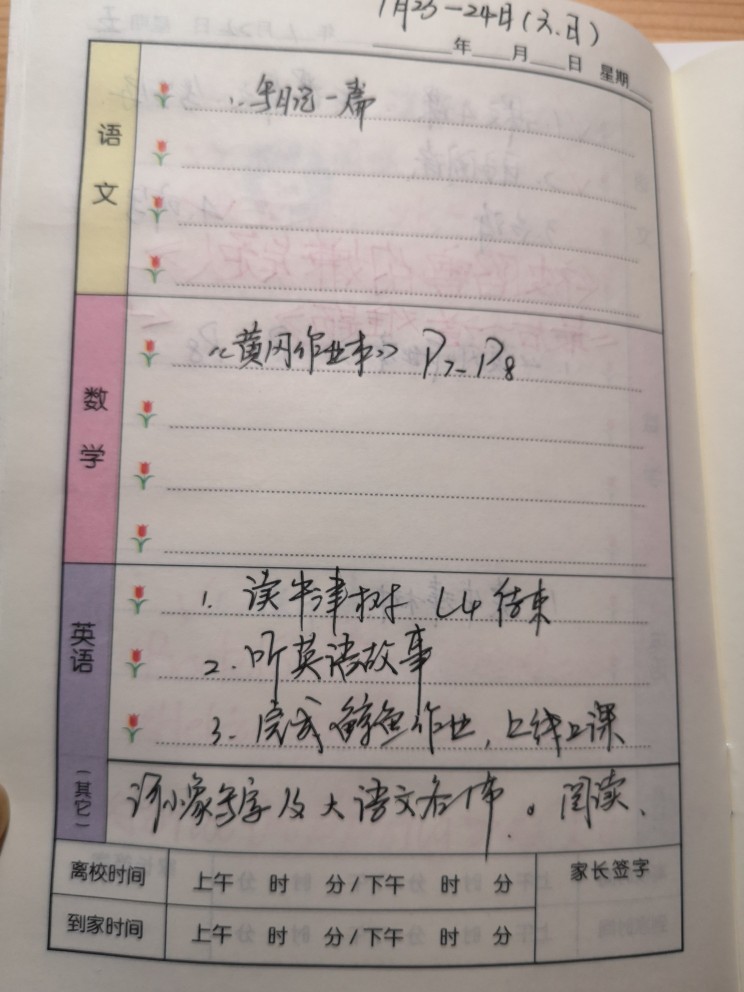 1月23-24日(六.日)
年 月 日 星期
语文
1. 日记一篇
数学
《黄冈作业本》P7-P8
英语
1. 读牛津树 L4 结束
2. 听英语故事
3. 完成鲸鱼作业,上线上课
(其它)
河小象写字及大语文 。阅读、
离校时间 上午 时 分/下午 时 分 家长签字
到家时间 上午 时 分/下午 时 分